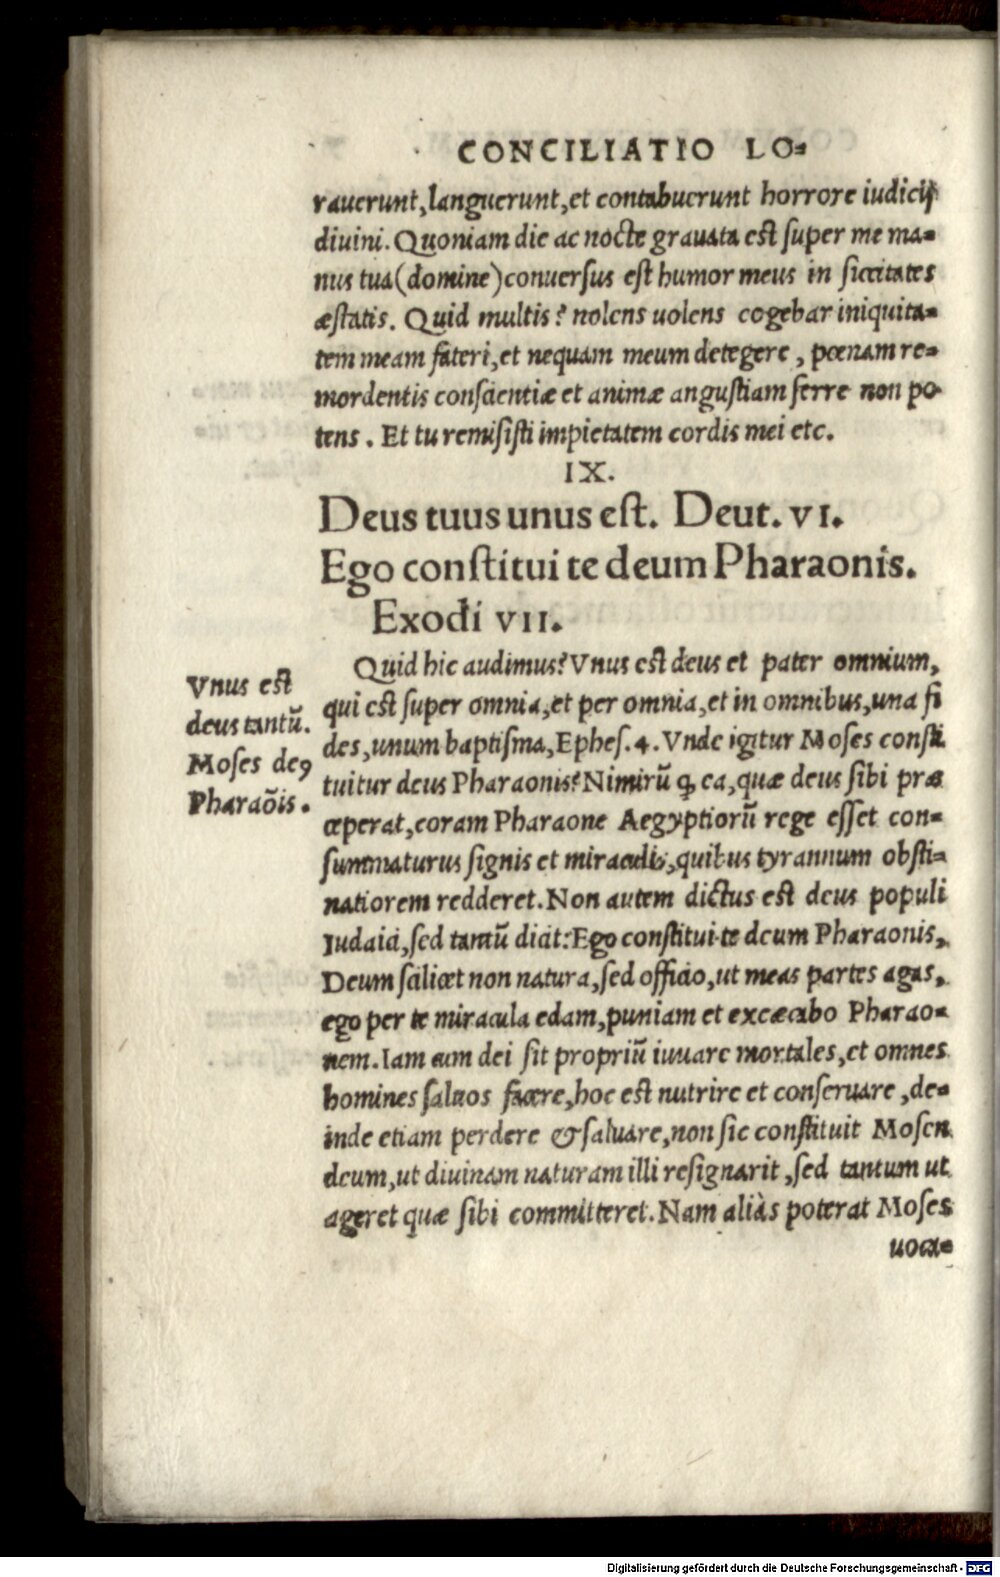 CONCILIATIO LO⸗
rauerunt, languerunt, et contabuerunt horrore iudicij
diuini. Quoniam die ac nocte grauata est super me ma⸗
nus tua (domine) conuersus est humor meus in siccitates
æstatis. Quid multis? nolens uolens cogebar iniquita⸗
tem meam fateri, et nequam meum detegere, pœnam re⸗
mordentis conscientiæ et animæ angustiam ferre non po
tens. Et tu remisisti impietatem cordis mei etc.
IX.
Deus tuus unus est. Deut. VI.
Ego constitui te deum Pharaonis.
Exodi VII.
Quid hic audimus? Vnus est deus et pater omnium,
qui est super omnia, et per omnia, et in omnibus, una fi
des, unum baptisma, Ephes. 4. Vnde igitur Moses consti
tuitur deus Pharaonis? Nimirū ꝙ ea, quæ deus sibi præ
ceperat, coram Pharaone Aegyptiorū rege esset con⸗
summaturus signis et miraculis, quibus tyrannum obsti⸗
natiorem redderet. Non autem dictus est deus populi
Iudaici, sed tantū dicit: Ego constitui te deum Pharaonis,
Deum scilicet non natura, sed officio, ut meas partes agas,
ego per te miracula edam, puniam et excæcabo Pharao⸗
nem. Iam cum dei sit propriū iuuare mortales, et omnes
homines saluos facere, hoc est nutrire et conseruare, de⸗
inde etiam perdere & saluare, non sic constituit Mosen
deum, ut diuinam naturam illi resignarit, sed tantum ut
ageret quæ sibi committeret. Nam aliàs poterat Moses
uoca⸗
Vnus est
deus tantū.
Moses deꝰ
Pharaōis.
Digitalisierung gefördert durch die Deutsche Forschungsgemeinschaft - DFG